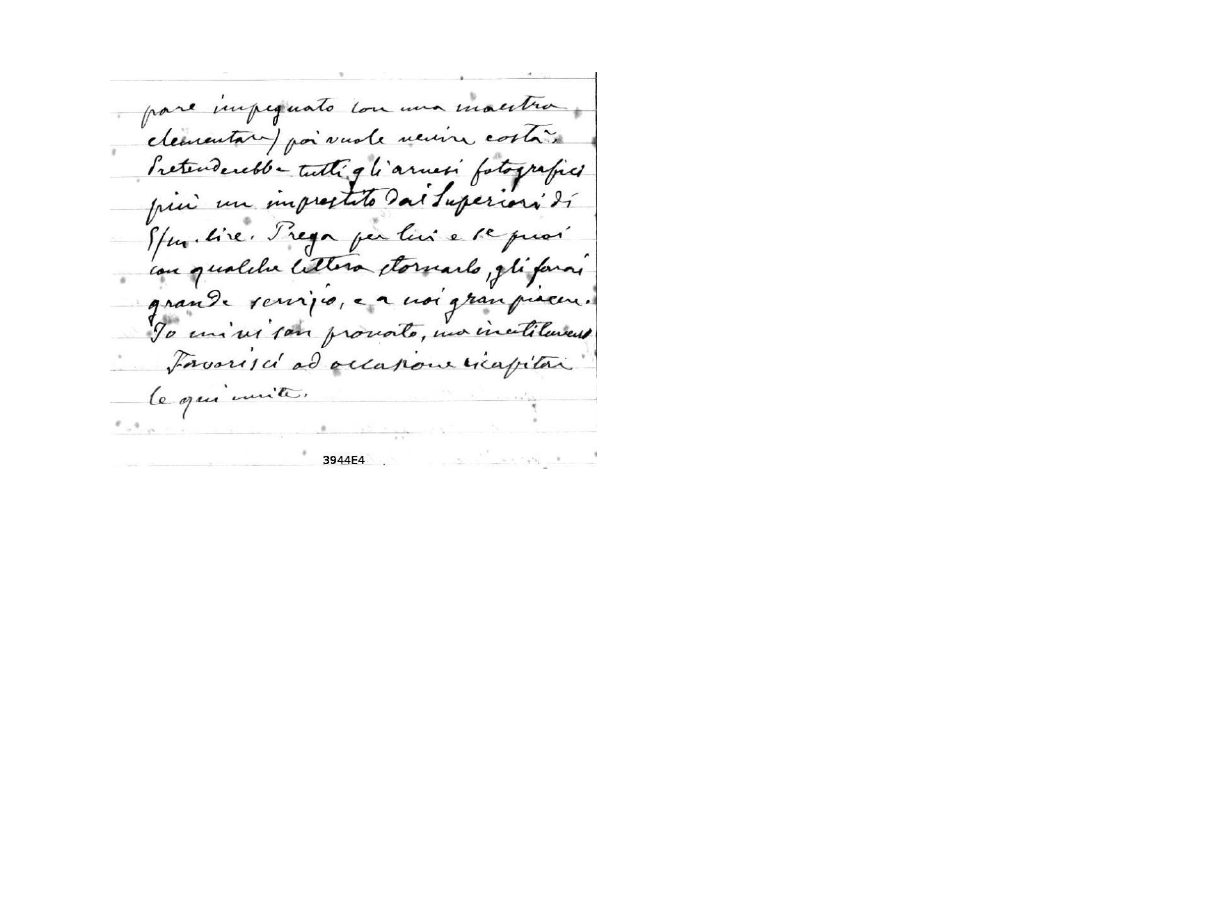 pare impegnato con una maestra
elementare) poi vuole venire costà.
Pretenderebbe tutti gli arnesi fotografici
più un imprestito dai Superiori di
5/m. lire. Prega per lui e se puoi
con qualche lettera stornarlo, gli farai
grande servizio, e a noi gran piacere.
Io mi vi son provato, ma inutilment
Favorisci ad occasione ricapitar
le qui unite.
3944E4